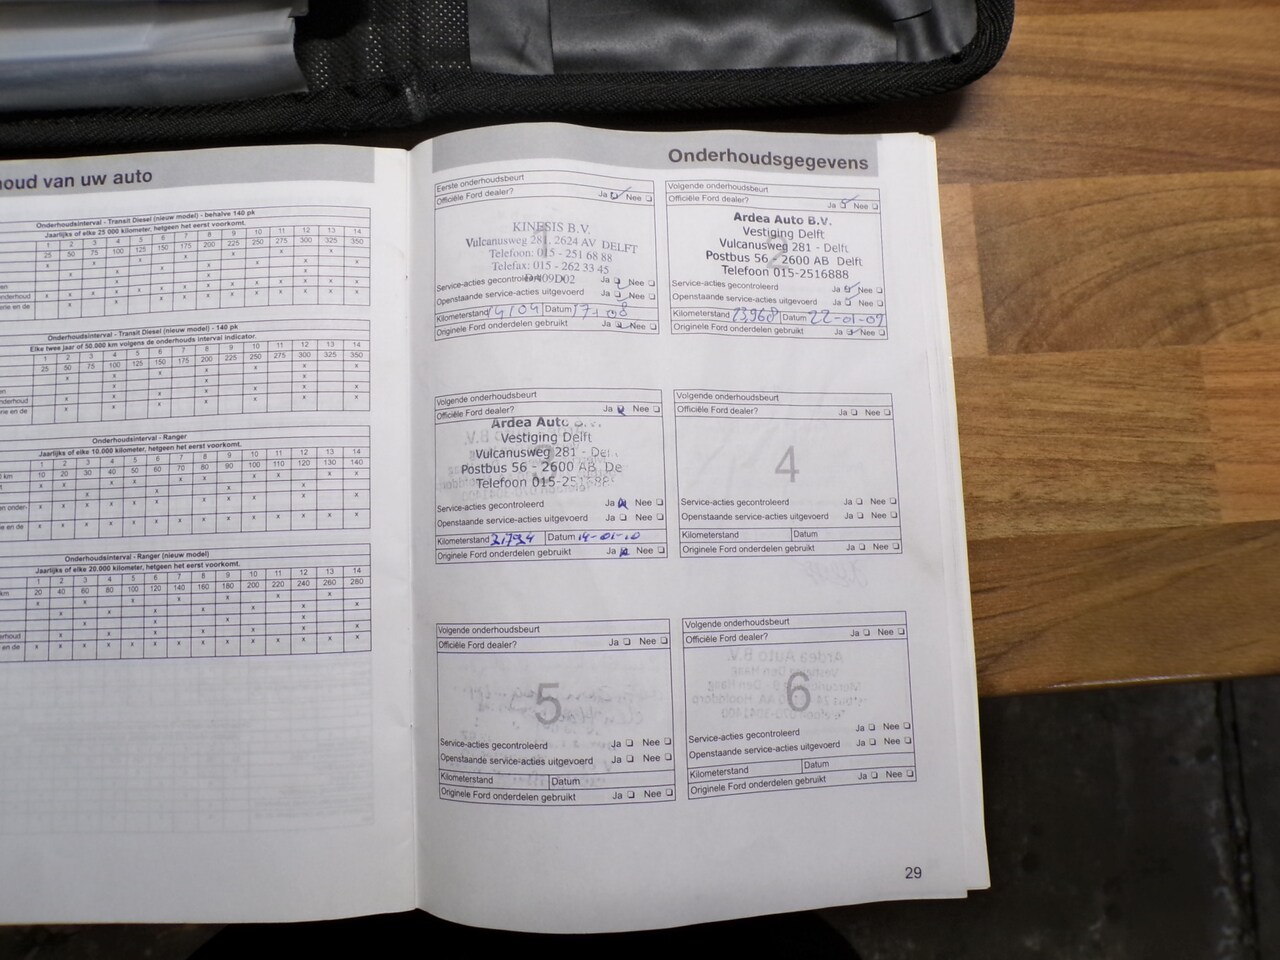 houd van uw auto
Onderhoudsinterval - Transit Diesel (nieuw model) - behalve 140 pk
Jaarlijks of elke 25 000 kilometer, hetgeen het eerst voorkomt.
1 2 3 4 5 6 7 8 9 10 11 12 13 14
25 50 75 100 125 150 175 200 225 250 275 300 325 350
Onderhoudsinterval - Transit Diesel (nieuw model) - 140 pk
Elke twee jaar of 50.000 km volgens de onderhouds interval indicator.
1 2 3 4 5 6 7 8 9 10 11 12 13 14
25 50 75 100 125 150 175 200 225 250 275 300 325 350
Onderhoudsinterval - Ranger
Jaarlijks of elke 10.000 kilometer, hetgeen het eerst voorkomt.
1 2 3 4 5 6 7 8 9 10 11 12 13 14
km 10 20 30 40 50 60 70 80 90 100 110 120 130 140
Onderhoudsinterval - Ranger (nieuw model)
Jaarlijks of elke 20.000 kilometer, hetgeen het eerst voorkomt.
1 2 3 4 5 6 7 8 9 10 11 12 13 14
km 20 40 60 80 100 120 140 160 180 200 220 240 260 280
Onderhoudsgegevens
Eerste onderhoudsbeurt
Officiële Ford dealer? Ja Nee
KINESIS B.V.
Vulcanusweg 281, 2624 AV DELFT
Telefoon: 015 - 251 68 88
Telefax: 015 - 262 33 45
Service-acties gecontroleerd Ja Nee
Openstaande service-acties uitgevoerd Ja Nee
Kilometerstand 14104 Datum
Originele Ford onderdelen gebruikt Ja Nee
Volgende onderhoudsbeurt
Officiële Ford dealer? Ja Nee
2
Ardea Auto B.V.
Vestiging Delft
Vulcanusweg 281 - Delft
Postbus 56 - 2600 AB Delft
Telefoon 015-2516888
Service-acties gecontroleerd Ja Nee
Openstaande service-acties uitgevoerd Ja Nee
Kilometerstand 23968 Datum 22-01-09
Originele Ford onderdelen gebruikt Ja Nee
Volgende onderhoudsbeurt
Officiële Ford dealer? Ja Nee
3
Ardea Auto B.V.
Vestiging Delft
Vulcanusweg 281 -
Postbus 56 - 2600 AB De
Telefoon 015-251688
Service-acties gecontroleerd Ja Nee
Openstaande service-acties uitgevoerd Ja Nee
Kilometerstand 31794 Datum 14-01-10
Originele Ford onderdelen gebruikt Ja Nee
Volgende onderhoudsbeurt
Officiële Ford dealer? Ja Nee
4
Service-acties gecontroleerd Ja Nee
Openstaande service-acties uitgevoerd Ja Nee
Kilometerstand Datum
Originele Ford onderdelen gebruikt Ja Nee
Volgende onderhoudsbeurt
Officiële Ford dealer? Ja Nee
5
Service-acties gecontroleerd Ja Nee
Openstaande service-acties uitgevoerd Ja Nee
Kilometerstand Datum
Originele Ford onderdelen gebruikt Ja Nee
Volgende onderhoudsbeurt
Officiële Ford dealer? Ja Nee
6
Service-acties gecontroleerd Ja Nee
Openstaande service-acties uitgevoerd Ja Nee
Kilometerstand Datum
Originele Ford onderdelen gebruikt Ja Nee
29